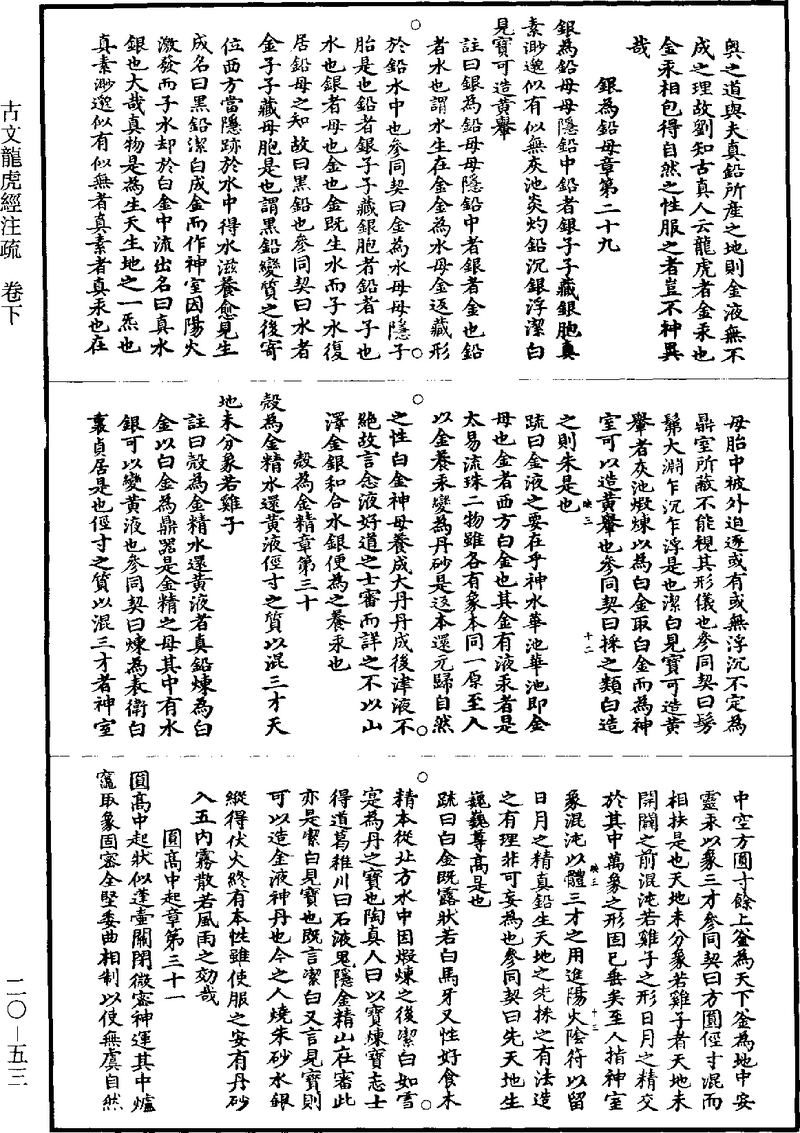 輿之道與夫真鉛所產之地則金液無不
成之理故劉知古真人云龍虎者金汞也
金汞相包得自然之性服之者豈不神異
哉
銀為鉛母章第二十九
銀為鉛母母隱鉛中鉛者銀子子藏銀胞真
素渺邈似有似無灰池炎灼鉛沉銀浮潔白
見寶可造黃轝
註曰銀為鉛母母隱鉛中者銀者金也鉛
者水也謂水生在金金為水母金返藏形
於鉛水中也參同契曰金為水母母隱子
胎是也鉛者銀子子藏銀胞者鉛者子也
水也銀者母也金也金既生水而子水復
居鉛母之知故曰黑鉛也參同契曰水者
金子子藏母胞是也謂黑鉛變質之後寄
位西方當隱跡於水中得水滋養愈見生
成名曰黑鉛潔白成金而作神室因陽火
激發而子水却於白金中流出名曰真水
銀也大哉真物是為生天生地之一炁也
真素渺邈似有似無者真素者真汞也在
母胎中被外迫逐或有或無浮沉不定為
鼎室所蔽不能視其形儀也參同契曰髣
髴大淵乍沉乍浮是也潔白見寶可造黃
轝者灰池煅煉以為白金取白金而為神
室可以造黃轝也參同契曰採之類白造
之則朱是也
疏曰金液之要在乎神水華池華池即金
母也金者西方白金也其金有液汞者是
太易流珠二物雖各有象本同一原至人
以金養汞變為丹砂是返本還元歸自然
之性白金神母養成大丹丹成後津液不
絕故言愈液好道之士審而詳之不以山
澤金銀和合水銀便為之養汞也
殼為金精章第三十
殼為金精水還黃液徑寸之質以混三才天
地未分象若雞子
註曰殼為金精水還黃液者真鉛煉為白
金以白金為鼎器是金精之母其中有水
銀可以變黃液也參同契曰煉為表衛白
裏貞居是也徑寸之質以混三才者神室
中空方圓寸餘上釜為天下釜為地中安
靈汞以象三才參同契曰方圓徑寸混而
相扶是也天地未分象若雞子者天地未
開闢之前混沌若雞子之形日月之精交
於其中萬象之形固已垂矣至人指神室
象混沌以體三才之用進陽火陰符以留
日月之精真鉛生天地之先採之有法造
之有理非可妄為也參同契曰先天地生
巍巍尊高是也
疏曰白金既露狀若白馬牙又性好食木
精本從北方水中因煅煉之後潔白如雪
寔為丹之寶也陶真人曰以寶煉寶志士
得道葛稚川曰石液鬼隱金精山在審此
亦是潔白見寶也既言潔白又言見寶則
可以造金液神丹也今之人燒朱砂水銀
縱得伏火終有本性雖使服之安有丹砂
入五內霧散若風雨之効哉
圓高中起章第三十一
圓高中起狀似蓬壺關閉微密神運其中爐
竈取象固密全堅委曲相制以使無虞自然
古文龍虎經注疏 卷下
二〇—五三